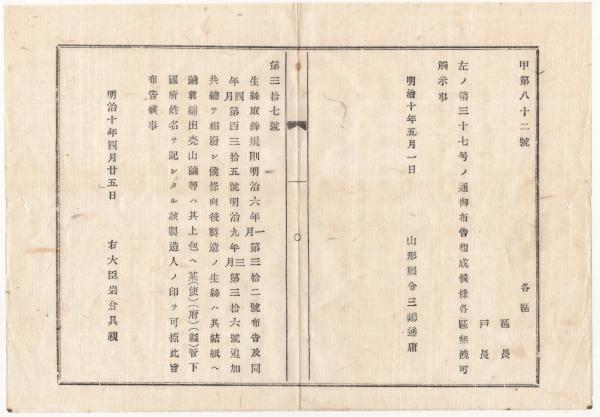 甲第八十二號
各區
區長
戸長
左ノ第三十七号ノ通御布告相成候條各區無洩可
觸示事
明治十年五月一日
山形縣令三島通庸
第三拾七號
生絲取締規則明治六年一月第三拾二號布告及同
年四月第百三拾五號明治九年三月第三拾六號追加
共總テ相廢シ候條向後製造ノ生絲ハ其結紙ヘ
繭眞綿出壳山繭等ハ其上包ヘ某(使)(府)(縣)管下
國所姓名ヲ記シタル該製造人ノ印ヲ可捺此旨
布告候事
明治十年四月廿五日
右大臣岩倉具視